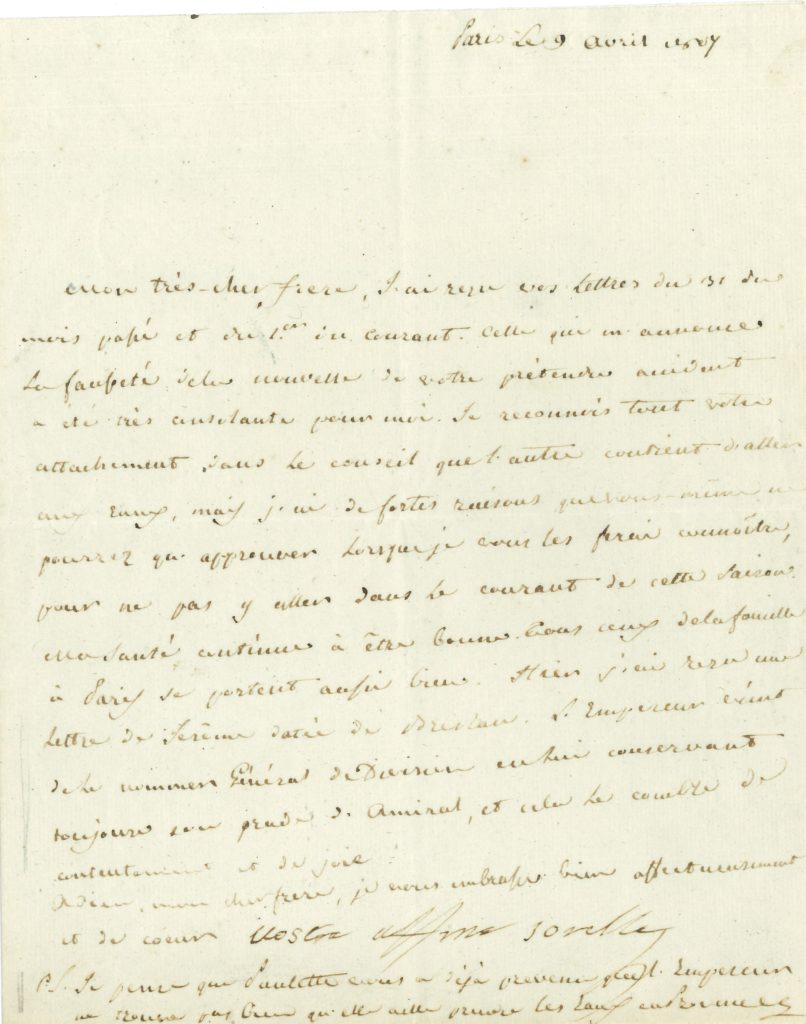 Paris Le 9 avril 1807
Mon très-cher frere, J'ai reçu vos Lettres du 31 du
mois passé et du 1.er du courant. Celle qui m'annonce
La fausseté dela nouvelle de votre prétendu accident
a été très consolante pour moi. Je reconnois tout votre
attachement dans Le conseil que l'autre contient d'aller
aux Eaux, mais j'ai de fortes raisons que vous-même ne
pourrez qu'approuver Lorsque je vous les ferai connoître,
pour ne pas y aller dans Le courant de cette Saison.
Ma Santé continue à être bonne. Tous ceux dela famille
à Paris se portent aussi bien. Hier j'ai reçu une
Lettre de Jerôme datée de Breslau. L'Empereur vient
de Le nommer Général de Division en Lui conservant
toujours son grade d'Amiral, et cela Le comble de
contentement et de joie.
Adieu, mon cher frere, je vous embrasse bien affectueusement
et de coeur vostra affma sorella
P.S. Je pense que Paulette vous a déjà prevenu que l'Empereur
ne trouve pas bien qu'elle aille prendre les Eaux en Provence